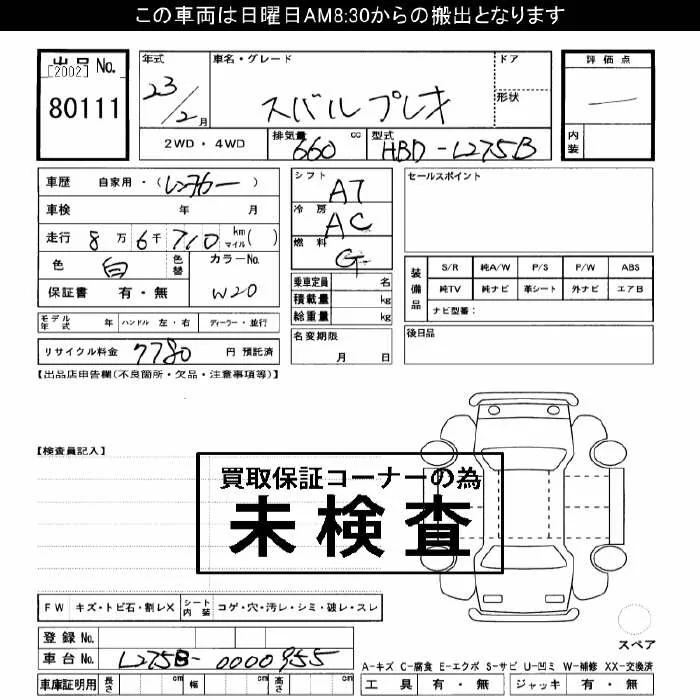 この車両は日曜日AM8:30からの搬出となります
出品 No.
[2002]
80111
年式
23/2月
車名・グレード
スバルプレオ
ドア
形状
評価点
内装
2WD・4WD
排気量 660 cc
型式 HBD-L275B
車歴 自家用・(レンタカー)
車検 年 月
走行 8万6千710 km マイル( )
色 白 色替 カラーNo. W20
保証書 有・無
モデル年式 年 ハンドル 左・右 ディーラー・並行
リサイクル料金 7780 円 預託済
シフト AT
冷房 AC
燃料 G
乗車定員 名
積載量 kg
総重量 kg
名変期限 月 日
セールスポイント
装備品
S/R 純A/W P/S P/W ABS
純TV 純ナビ 革シート 外ナビ エアB
ナビ型番：
後日品
【出品店申告欄(不良箇所・欠品・注意事項等)】
【検査員記入】
買取保証コーナーの為
未検査
FW キズ・トビ石・割レX シート内装 コゲ・穴・汚レ・シミ・破レ・スレ
登録 No.
車台 No. L275B-0000955
車庫証明用 長さ cm 幅 cm 高さ cm
スペア
A-キズ C-腐食 E-エクボ S-サビ U-凹ミ W-補修 XX-交換済
工具 有・無 ジャッキ 有・無